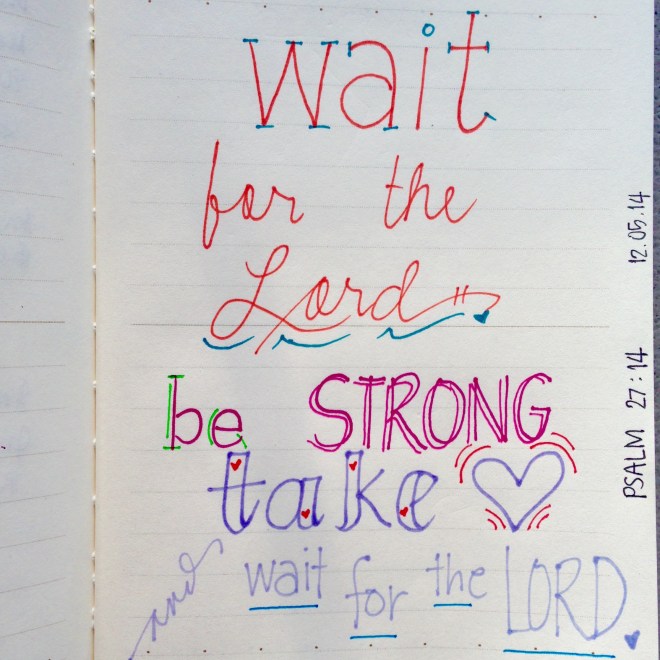 wait
for the
Lord
be STRONG
take
and wait for the LORD.
PSALM 27:14
12.05.14